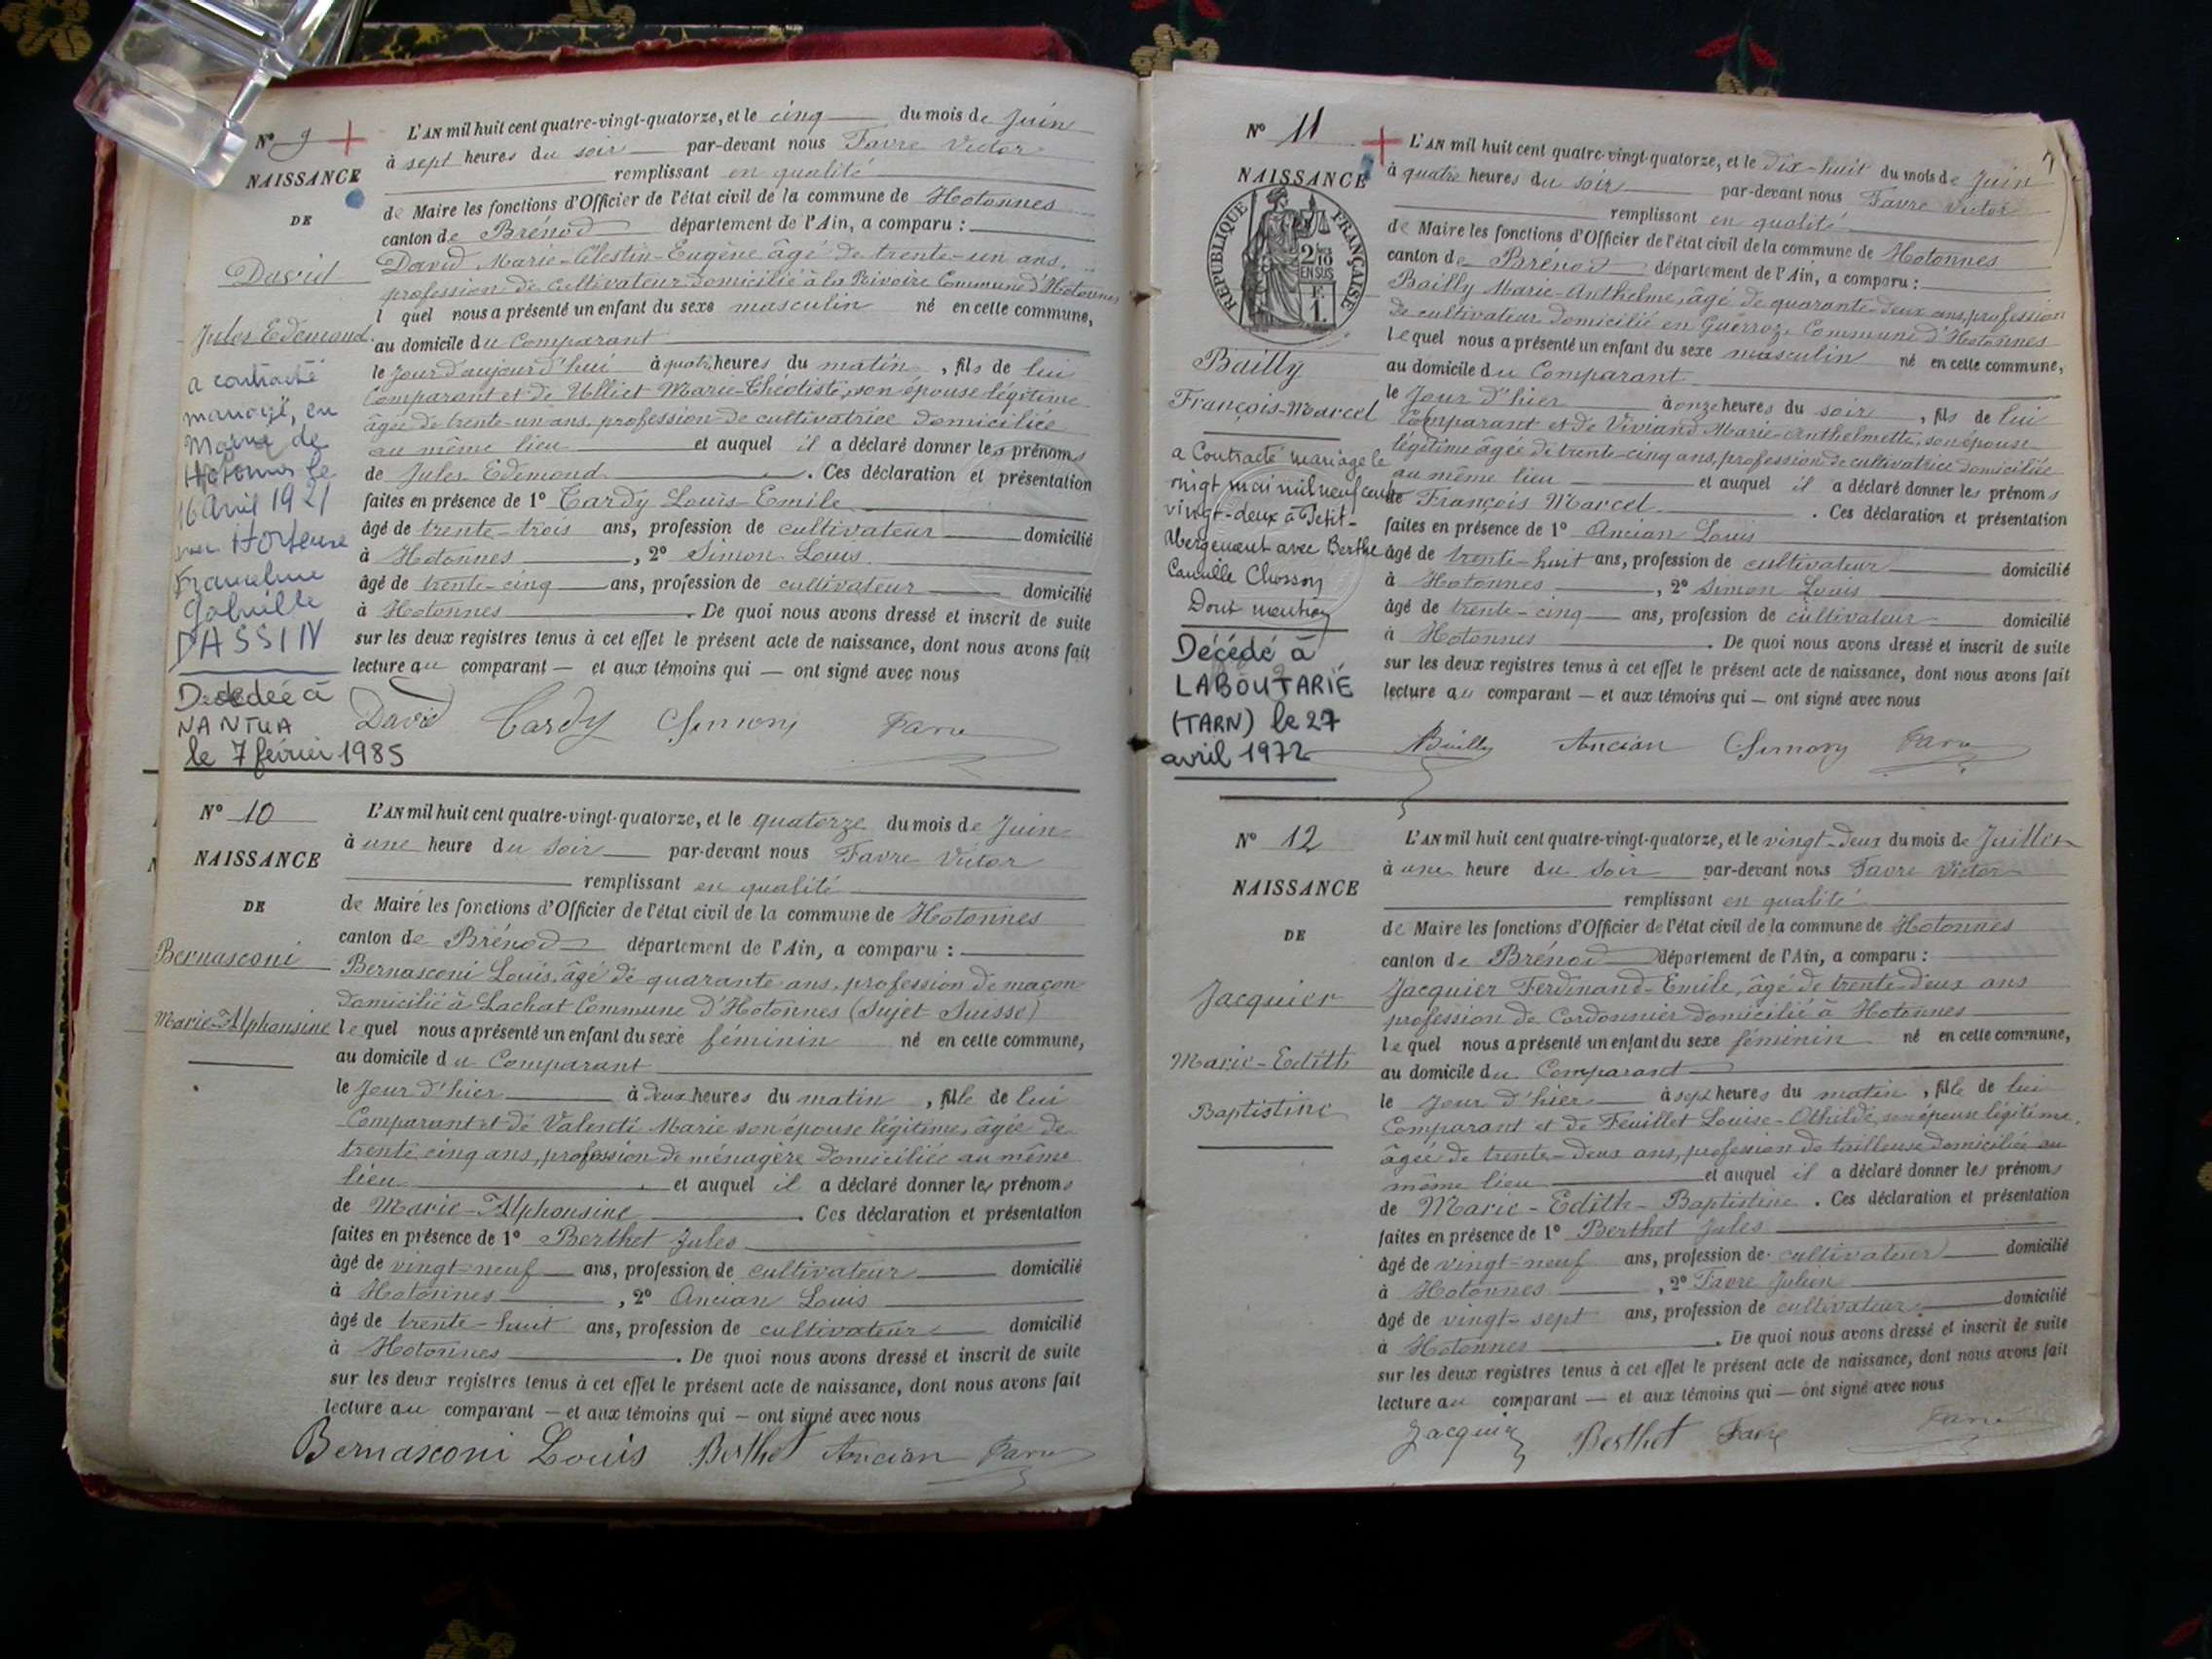 N° 9
NAISSANCE
DE
David
Jules Edemond.
a contracté
mariage, en
Mairie de
Hotonnes le
16 Avril 1921
avec Hortense
Franceline
Gabrielle
DASSIN
Dedcdeé à
NANTUA
le 7 février 1985
L'AN mil huit cent quatre-vingt-quatorze, et le cinq du mois de Juin
à sept heures du soir par-devant nous Favre Victor
remplissant en qualité
de Maire les fonctions d'Officier de l'état civil de la commune de Hotonnes
canton de Brénod département de l'Ain, a comparu :
David Marie-Célestin-Eugène âgé de trente-un ans,
profession de cultivateur domicilié à la Rivoire Commune d'Hotonnes
l quel nous a présenté un enfant du sexe masculin né en cette commune,
au domicile du Comparant
le Jour d'aujourd'hui à quatre heures du matin, fils de lui
Comparant et de Ulliet Marie-Théotiste, son épouse légitime
âgée de trente-un ans, profession de cultivatrice domiciliée
au même lieu et auquel il a déclaré donner les prénoms
de Jules Edemond. Ces déclaration et présentation
faites en présence de 1° Tardy Louis-Emile
âgé de trente-trois ans, profession de cultivateur domicilié
à Hotonnes, 2° Simon Louis
âgé de trente-cinq ans, profession de cultivateur domicilié
à Hotonnes. De quoi nous avons dressé et inscrit de suite
sur les deux registres tenus à cet effet le présent acte de naissance, dont nous avons fait
lecture au comparant — et aux témoins qui — ont signé avec nous
David Tardy Simon Favre
N° 10
NAISSANCE
DE
Bernasconi
Marie-Alphonsine
L'AN mil huit cent quatre-vingt-quatorze, et le quatorze du mois de Juin
à une heure du soir par-devant nous Favre Victor
remplissant en qualité
de Maire les fonctions d'Officier de l'état civil de la commune de Hotonnes
canton de Brénod département de l'Ain, a comparu :
Bernasconi Louis, âgé de quarante ans, profession de maçon
domicilié à Lachat Commune d'Hotonnes (Sujet Suisse)
le quel nous a présenté un enfant du sexe féminin né en cette commune,
au domicile du Comparant
le Jour d'hier à deux heures du matin, fille de lui
Comparant et de Valenti Marie son épouse légitime, âgée de
trente cinq ans, profession de ménagère domiciliée au même
lieu et auquel il a déclaré donner les prénoms
de Marie-Alphonsine. Ces déclaration et présentation
faites en présence de 1° Berthet Jules
âgé de vingt-neuf ans, profession de cultivateur domicilié
à Hotonnes, 2° Ancian Louis
âgé de trente-huit ans, profession de cultivateur domicilié
à Hotonnes. De quoi nous avons dressé et inscrit de suite
sur les deux registres tenus à cet effet le présent acte de naissance, dont nous avons fait
lecture au comparant — et aux témoins qui — ont signé avec nous
Bernasconi Louis Berthet Ancian Favre
N° 11
NAISSANCE
REPUBLIQUE FRANÇAISE
2/10
EN SUS
F.
1.
Bailly
François-Marcel
a Contracté mariage le
vingt mai mil neuf cent
vingt-deux à Petit-
Abergement avec Berthe
Camille Chosson
Dont mention
Décédé à
LABOUTARIÉ
(TARN) le 27
avril 1972
L'AN mil huit cent quatre-vingt-quatorze, et le dix-huit du mois de Juin
à quatre heures du soir par-devant nous Favre Victor
remplissant en qualité
de Maire les fonctions d'Officier de l'état civil de la commune de Hotonnes
canton de Brénod département de l'Ain, a comparu :
Bailly Marie-Anthelme, âgé de quarante-deux ans, profession
de cultivateur domicilié en Guerroz, Commune d'Hotonnes
lequel nous a présenté un enfant du sexe masculin né en cette commune,
au domicile du Comparant
le Jour d'hier à onze heures du soir, fils de lui
Comparant et de Viviand Marie-Anthelmette, son épouse
légitime âgée de trente-cinq ans, profession de cultivatrice domiciliée
au même lieu et auquel il a déclaré donner les prénoms
de François Marcel. Ces déclaration et présentation
faites en présence de 1° Ancian Louis
âgé de trente-huit ans, profession de cultivateur domicilié
à Hotonnes, 2° Simon Louis
âgé de trente-cinq ans, profession de cultivateur domicilié
à Hotonnes. De quoi nous avons dressé et inscrit de suite
sur les deux registres tenus à cet effet le présent acte de naissance, dont nous avons fait
lecture au comparant — et aux témoins qui — ont signé avec nous
Bailly Ancian Simon Favre
N° 12
NAISSANCE
DE
Jacquier
Marie-Edith
Baptistine
L'AN mil huit cent quatre-vingt-quatorze, et le vingt-deux du mois de Juillet
à une heure du soir par-devant nous Favre Victor
remplissant en qualité
de Maire les fonctions d'Officier de l'état civil de la commune de Hotonnes
canton de Brénod département de l'Ain, a comparu :
Jacquier Ferdinand-Emile, âgé de trente-deux ans
profession de Cordonnier domicilié à Hotonnes
lequel nous a présenté un enfant du sexe féminin né en cette commune,
au domicile du Comparant
le Jour d'hier à sept heures du matin, fille de lui
Comparant et de Feuillet Louise-Othilde, son épouse légitime,
âgée de trente-deux ans, profession de tailleuse domiciliée au
même lieu et auquel il a déclaré donner les prénoms
de Marie-Edith-Baptistine. Ces déclaration et présentation
faites en présence de 1° Berthet Jules
âgé de vingt-neuf ans, profession de cultivateur domicilié
à Hotonnes, 2° Favre Julien
âgé de vingt-sept ans, profession de cultivateur domicilié
à Hotonnes. De quoi nous avons dressé et inscrit de suite
sur les deux registres tenus à cet effet le présent acte de naissance, dont nous avons fait
lecture au comparant — et aux témoins qui — ont signé avec nous
Jacquier Berthet Favre Favre